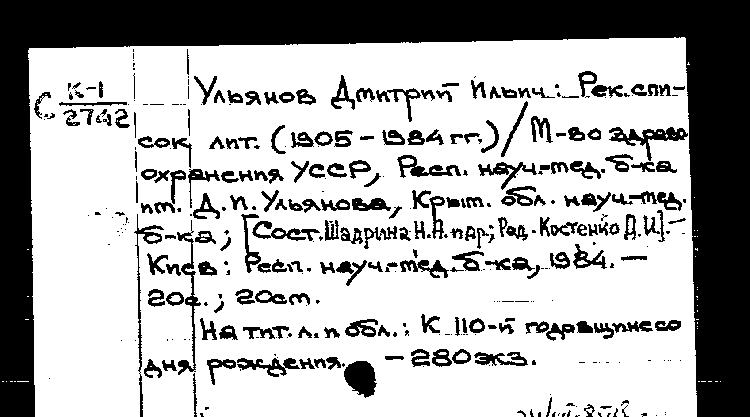 С К-1
2742
Ульянов Дмитрий Ильич: Рек. спи-
сок лит. (1905 - 1984 гг.) / М-во здраво
охранения УССР, Респ. науч.-мед. б-ка
им. Д.И. Ульянова, Крым. обл. науч.-мед.
б-ка; [Сост. Шадрина Н.А. и др.; Ред. Костенко Д.И]. -
Киев: Респ. науч.-мед. б-ка, 1984. -
20с.; 20см.
На тит. л. и обл.: К 110-й годовщине со
дня рождения. - 280 экз.